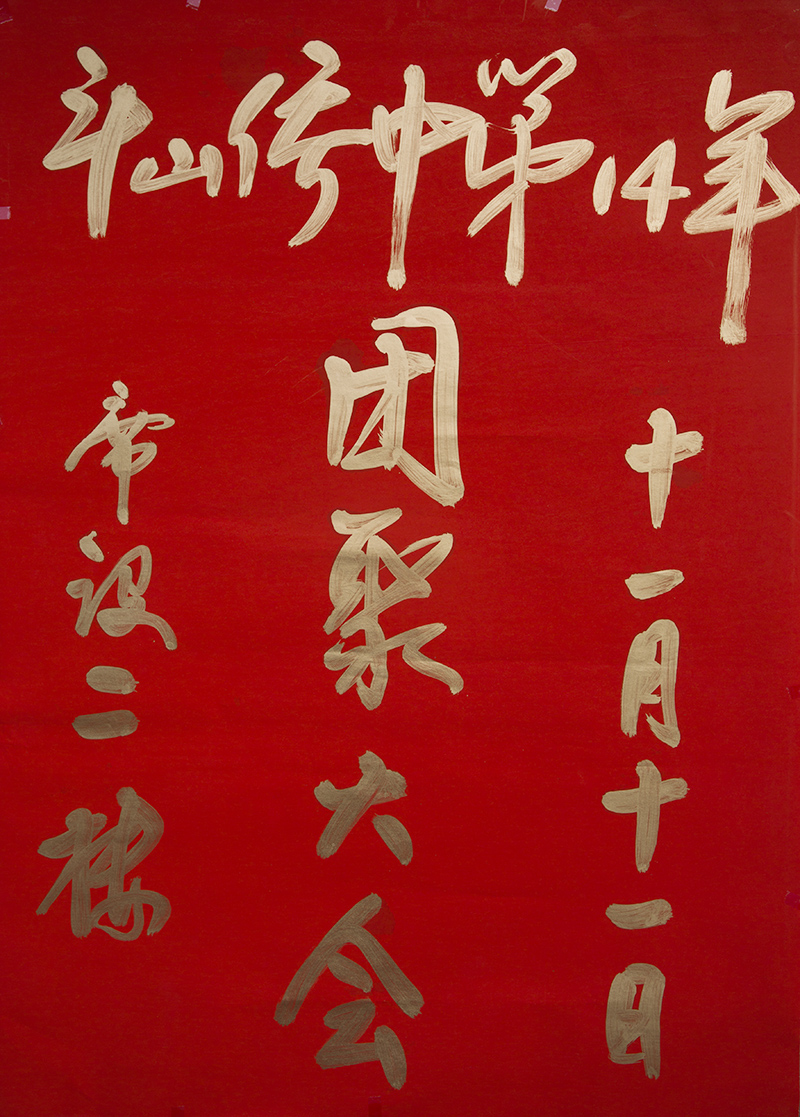 斗山侨中第14年
十一月十一日
团聚大会
席设二楼